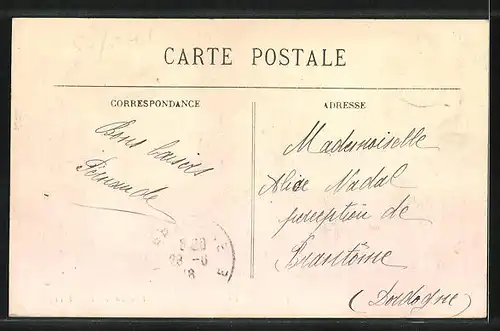 CARTE POSTALE
CORRESPONDANCE
ADRESSE
Bons baisers
Fernande
Mademoiselle
Alice Nadal
perception de
Brantôme
(Dordogne)